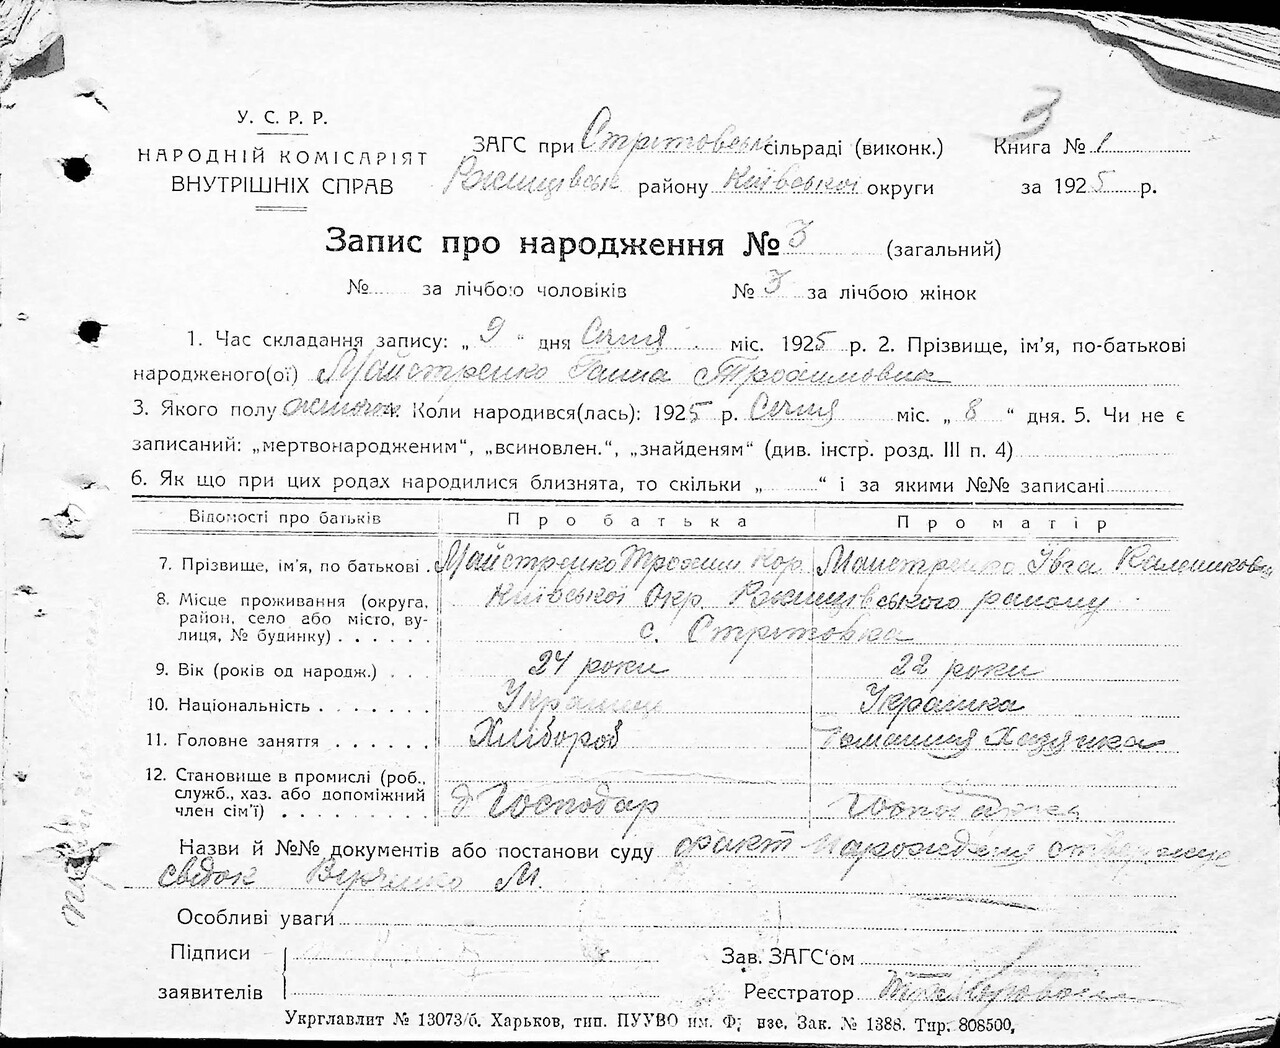 3
У. С. Р. Р.
НАРОДНІЙ КОМІСАРІЯТ
ВНУТРІШНІХ СПРАВ
ЗАГС при Стрітовськ сільраді (виконк.) Книга № 1
Ржищівськ району Київської округи за 1925 р.
Запис про народження № 3 (загальний)
№ за лічбою чоловіків № 3 за лічбою жінок
1. Час складання запису: „ 9 “ дня Січня міс. 1925 р. 2. Прізвище, ім’я, по-батькові
народженого(ої) Майстренко Ганна Трохимовна
3. Якого полу жіноч. 4. Коли народився(лась): 1925 р. Січня міс. „ 8 “ дня. 5. Чи не є
записаний: „мертвонародженим“, „всиновлен.“, „знайденям“ (див. інстр. розд. III п. 4)
6. Як що при цих родах народилися близнята, то скільки „ “ і за якими №№ записані
Відомості про батьків Про батька Про матір
7. Прізвище, ім’я, по батькові Майстренко Трохим Кор. Майстренко Ївга
8. Місце проживання (округа, Київської Окр. Ржищівського району
район, село або місто, ву- с. Стрітовка
лиця, № будинку)
9. Вік (років од народж.) 24 роки 22 роки
10. Національність Українець Українка
11. Головне заняття Хлібороб Домашня Хазяйка
12. Становище в промислі (роб.,
служб., хаз. або допоміжний
член сім’ї) Господар
Назви й №№ документів або постанови суду факт народження
свідок М.
Особливі уваги
Підписи Зав. ЗАГС‘ом
заявителів Реєстратор
Укрглавлит № 13073/б. Харьков, тип. ПУУВО им. Фрунзе. Зак. № 1388. Тир. 808500,